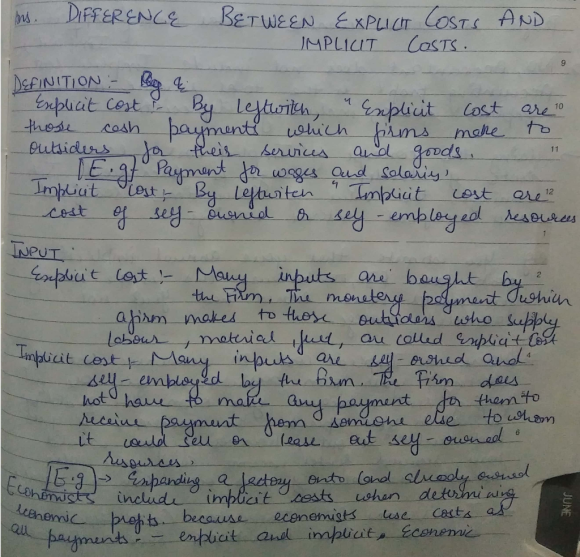 Ans. DIFFERENCE BETWEEN EXPLICIT COSTS AND
IMPLICIT COSTS.
9
DEFINITION:-
Explicit Cost :- By leftwitch, "Explicit cost are
10
those cash payments which firms make to
outsiders for their services and goods.
11
[E.g] Payment for wages and salary,
Implicit Cost :- By leftwitch "Implicit cost are
12
cost of self-owned or self-employed resources
1
INPUT:
Explicit Cost :- Many inputs are bought by
2
the Firm. The monetary payment which
a firm makes to those outsiders who supply
labour, material, fuel, are called Explicit Cost
Implicit cost :- Many inputs are self-owned and
self-employed by the firm. The Firm does
not have to make any payment for them to
receive payment from someone else to whom
it could sell or lease out self-owned
resources.
[E.g] → Expanding a factory onto land already owned
Economists include implicit costs when determining
economic profits. because economists use costs as
all payments. - explicit and implicit. Economic
JUNE